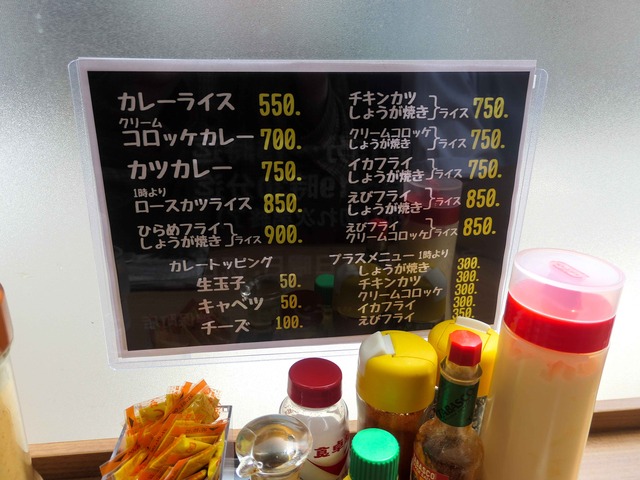 カレーライス 550.
クリーム
コロッケカレー 700.
カツカレー 750.
1時より
ロースカツライス 850.
ひらめフライ
しょうが焼き ライス 900.
カレートッピング
生玉子 50.
キャベツ 50.
チーズ 100.
チキンカツ
しょうが焼き ライス 750.
クリームコロッケ
しょうが焼き ライス 750.
イカフライ
しょうが焼き ライス 750.
えびフライ
しょうが焼き ライス 850.
えびフライ
クリームコロッケ ライス 850.
プラスメニュー 1時より
しょうが焼き 300.
チキンカツ 300.
クリームコロッケ 300.
イカフライ 300.
えびフライ 350.
食卓
TABASCO